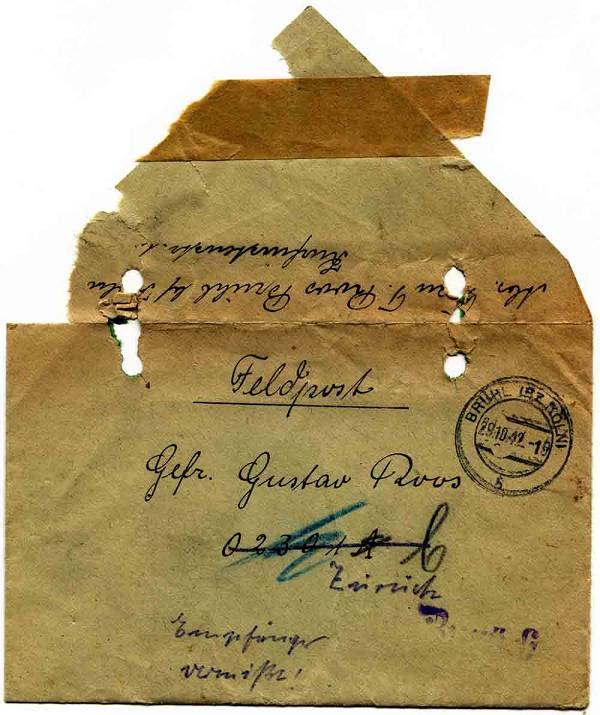 Abs. Frau G. Roos Brühl bz. Köln
Kurfürstenstr.
Feldpost
BRÜHL (BZ KÖLN)
29.10.42.-19
b
Gefr. Gustav Roos
02301 A
Zurück
Empfänger
vermißt!